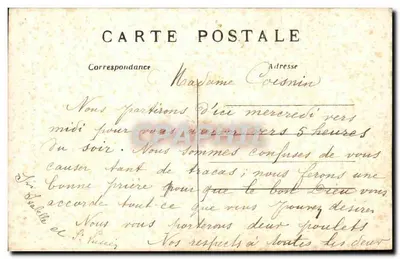 CARTE POSTALE
Correspondance
Adresse
Madame Coisnin
Nous partirons d'ici mercredi vers
midi pour vous vers 5 heures
du soir. Nous sommes confuses de vous
causer tant de tracas; nous ferons une
bonne prière pour que le bon Dieu vous
accorde tout ce que vous pouvez désirer
Nous vous porterons deux poulets
Nos respects à toutes les deux